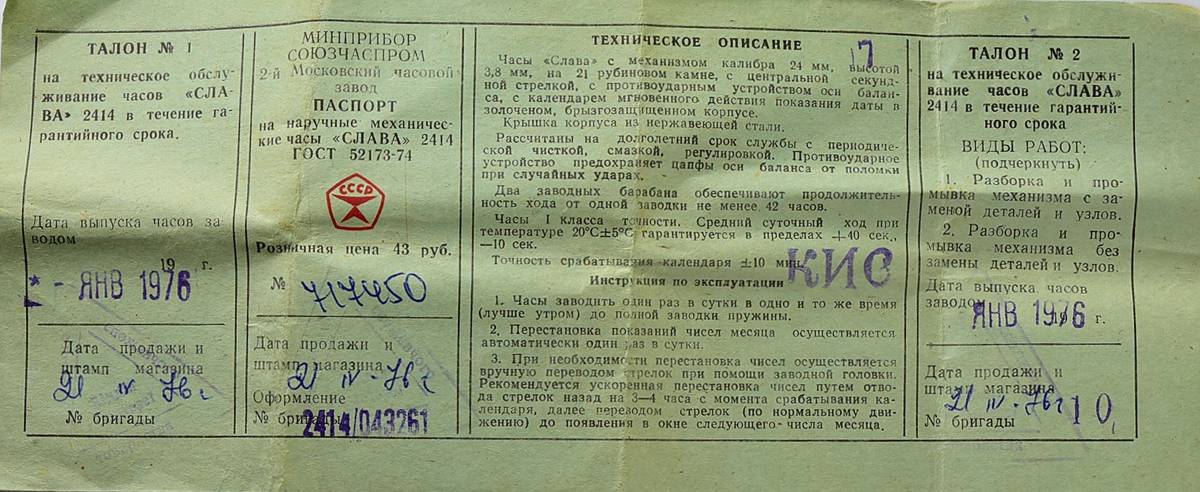 ТАЛОН № 1
на техническое обслу-
живание часов «СЛА-
ВА» 2414 в течение га-
рантийного срока.
Дата выпуска часов за-
водом
19 г.
ЯНВ 1976
Дата продажи и
штамп магазина
21 IV-76 г
№ бригады
МИНПРИБОР
СОЮЗЧАСПРОМ
2-й Московский часовой
завод
ПАСПОРТ
на наручные механичес-
кие часы «СЛАВА» 2414
ГОСТ 52173-74
СССР
Розничная цена 43 руб.
№ 717450
Дата продажи и
штамп магазина
21 IV-76 г
Оформление
№ бригады
2414/043261
ТЕХНИЧЕСКОЕ ОПИСАНИЕ
17
Часы «Слава» с механизмом калибра 24 мм, высотой
3,8 мм, на 21 рубиновом камне, с центральной секунд-
ной стрелкой, с противоударным устройством оси балан-
са, с календарем мгновенного действия показания даты в
золоченом, брызгозащищенном корпусе.
Крышка корпуса из нержавеющей стали.
Рассчитаны на долголетний срок службы с периодиче-
ской чисткой, смазкой, регулировкой. Противоударное
устройство предохраняет цапфы оси баланса от поломки
при случайных ударах.
Два заводных барабана обеспечивают продолжитель-
ность хода от одной заводки не менее 42 часов.
Часы I класса точности. Средний суточный ход при
температуре 20°С±5°С гарантируется в пределах +40 сек.,
—10 сек.
Точность срабатывания календаря ±10 мин.
КИС
Инструкция по эксплуатации
1. Часы заводить один раз в сутки в одно и то же время
(лучше утром) до полной заводки пружины.
2. Перестановка показаний чисел месяца осуществляется
автоматически один раз в сутки.
3. При необходимости перестановка чисел осуществляется
вручную переводом стрелок при помощи заводной головки.
Рекомендуется ускоренная перестановка чисел путем отво-
да стрелок назад на 3—4 часа с момента срабатывания ка-
лендаря, далее переводом стрелок (по нормальному дви-
жению) до появления в окне следующего числа месяца.
ТАЛОН № 2
на техническое обслужи-
вание часов «СЛАВА»
2414 в течение гарантий-
ного срока
ВИДЫ РАБОТ:
(подчеркнуть)
1. Разборка и про-
мывка механизма с за-
меной деталей и узлов.
2. Разборка и про-
мывка механизма без
замены деталей и узлов.
Дата выпуска часов
заводом
ЯНВ 1976 г.
Дата продажи и
штамп магазина
21 IV-76 г
10
№ бригады